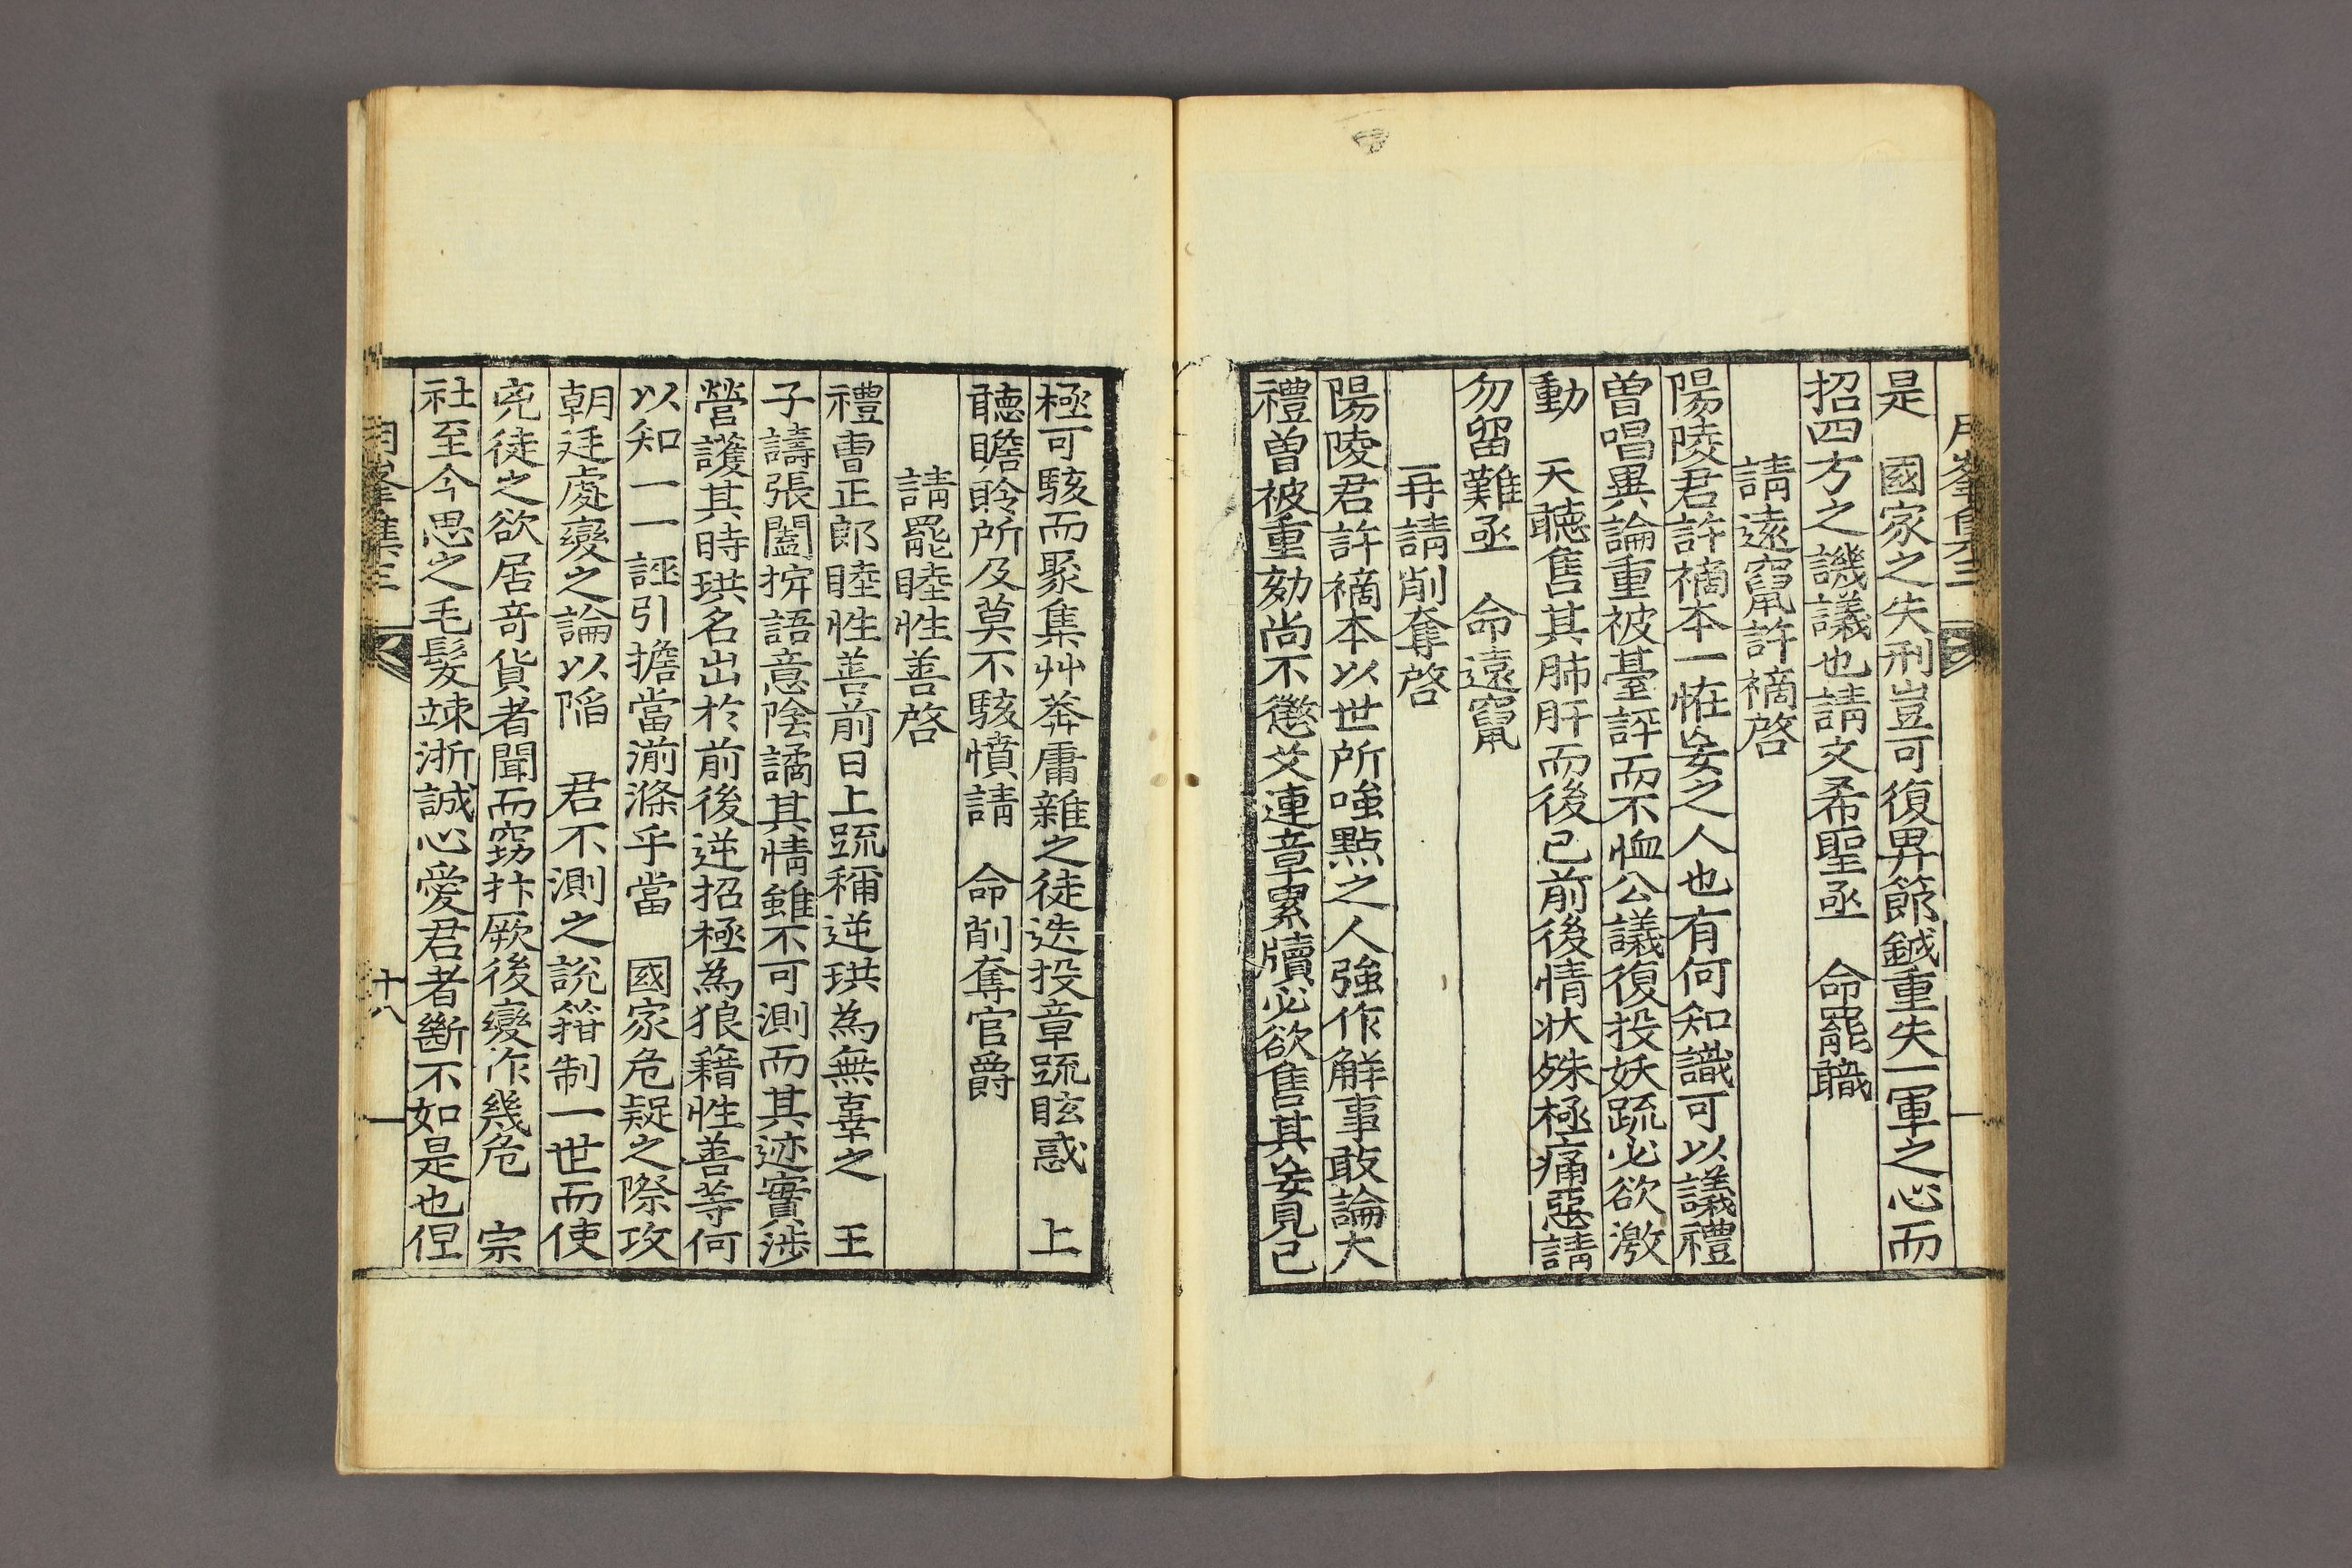 是　國家之失刑豈可復畀節鉞重失一軍之心而
招四方之譏議也請文希聖亟　命罷職
請遠竄許䙗啓
陽陵君許䙗本一恠妄之人也有何知識可以議禮
曽唱異論重被臺評而不恤公議復投妖疏必欲激
動　天聽售其肺肝而後已前後情状殊極痛惡請
勿留難亟　命遠竄
再請削奪啓
陽陵君許䙗本以世所嗤點之人強作解事敢論大
禮曽被重劾尚不懲艾連章累牘必欲售其妄見已
極可駭而聚集艸莽庸雜之徒迭投章疏眩惑　上
聽瞻聆所及莫不駭憤請　命削奪官爵
請罷睦性善啓
禮曺正郎睦性善前日上疏稱逆珙為無辜之　王
子譸張闔捭語意陰譎其情雖不可測而其迹實涉
營護其時珙名出於前後逆招極為狼藉性善等何
以知一一誣引擔當湔滌乎當　國家危疑之際攻
朝廷處變之論以陷　君不測之說箝制一世而使
兇徒之欲居竒貨者聞而竊抃厥後變作幾危　宗
社至今思之毛髮竦淅誠心愛君者斷不如是也但
十八